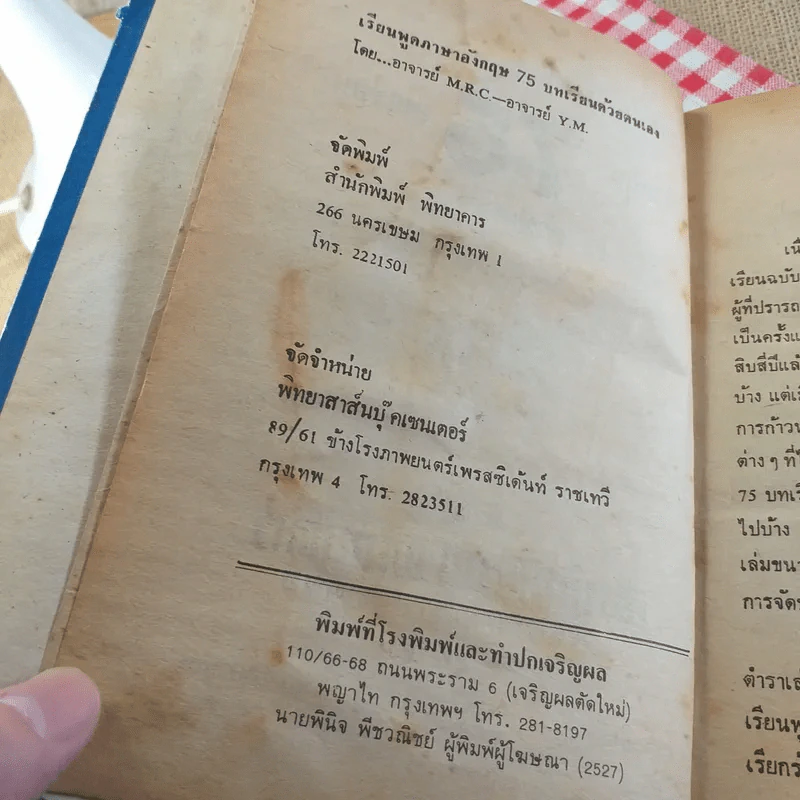 เรียนพูดภาษาอังกฤษ 75 บทเรียนด้วยตนเอง
โดย...อาจารย์ M.R.C.—อาจารย์ Y.M.
จัดพิมพ์
สำนักพิมพ์ พิทยาคาร
266 นครเขษม กรุงเทพ 1
โทร. 2221501
จัดจำหน่าย
พิทยาสาส์นบุ๊คเซนเตอร์
89/61 ข้างโรงภาพยนตร์เพรสซิเด้นท์ ราชเทวี
กรุงเทพ 4 โทร. 2823511
พิมพ์ที่โรงพิมพ์และทำปกเจริญผล
110/66-68 ถนนพระราม 6 (เจริญผลตัดใหม่)
พญาไท กรุงเทพฯ โทร. 281-8197
นายพินิจ พีชวณิชย์ ผู้พิมพ์ผู้โฆษณา (2527)
เรียนฉบับ
ผู้ที่ปรารถ
เป็นครั้งแ
สิบสี่ปีแล้
บ้าง แต่เมื
การก้าวห
ต่างๆ ที่ใ
75 บทเรี
ไปบ้าง
เล่มขนา
การจัด
ตำราเล
เรียนพู
เรียกร้